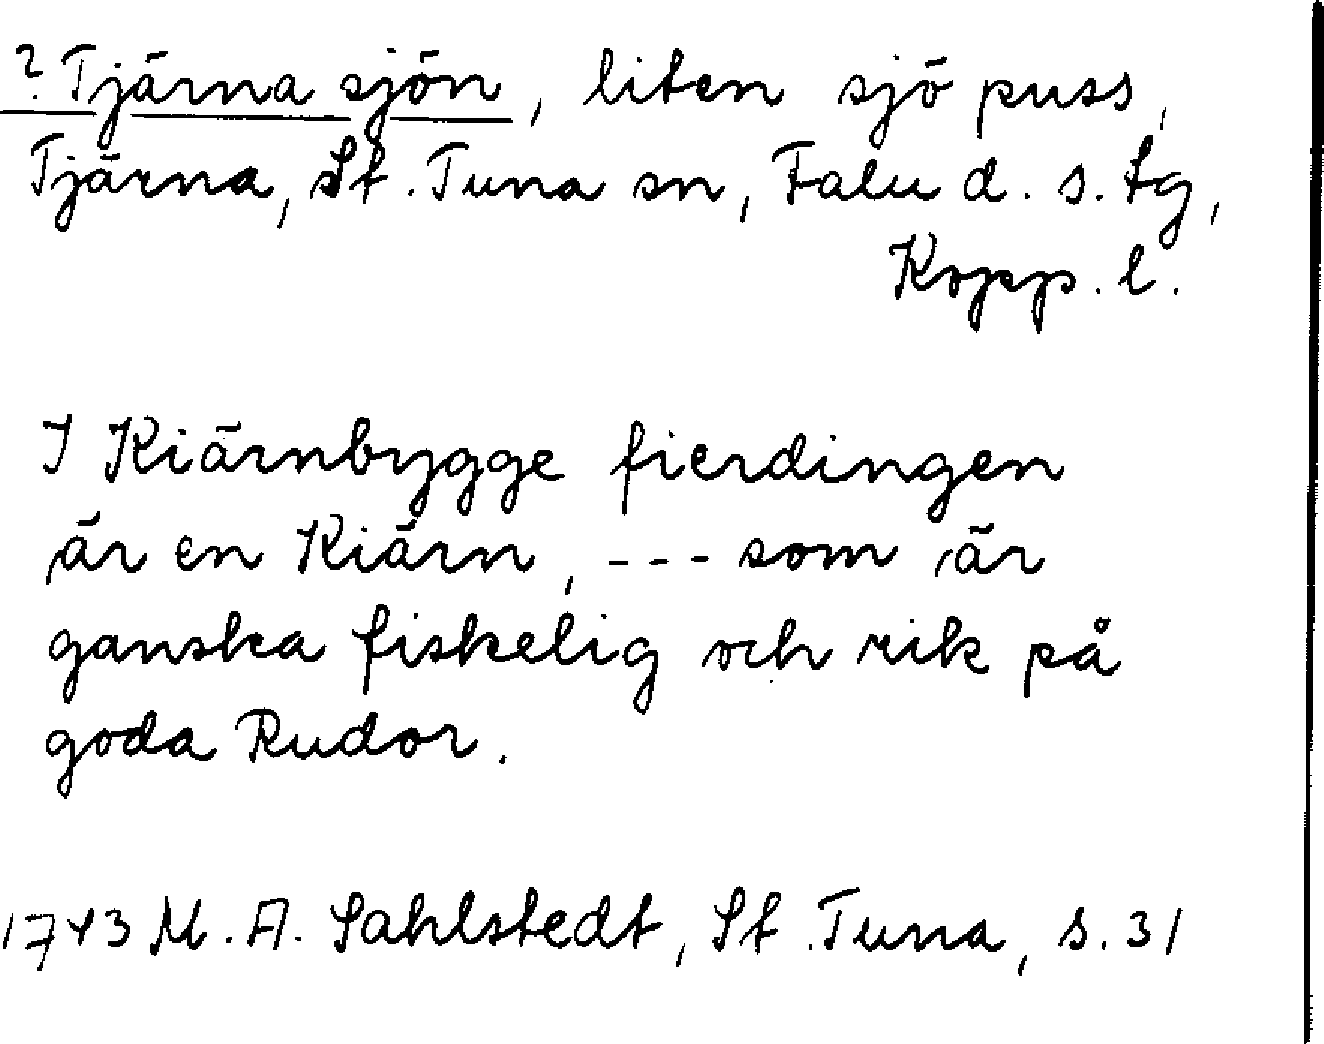 ? Tjärna sjön, liten sjö puss,
Tjärna, St. Tuna sn, Falu d. s. tg,
Kopp. l.
I Kiärnbygge fierdingen
är en Kiärn, --- som är
ganska fiskelig och rik på
goda Rudor.
1743 M. A. Sahlstedt, St. Tuna, s. 31